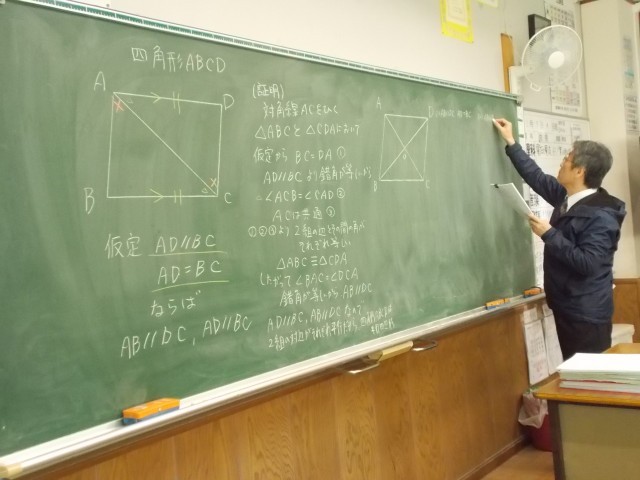 四角形ABCD
A
D
B
C
仮定 AD//BC
AD=BC
ならば
AB//DC, AD//BC
(証明)
対角線ACをひく
△ABCと△CDAにおいて
仮定から BC=DA ①
AD//BCより錯角が等しいから
∠ACB=∠CAD ②
ACは共通 ③
①②③より 2組の辺とその間の角が
それぞれ等しい
△ABC≡△CDA
したがって ∠BAC=∠DCA
錯角が等しいから AB//DC
AD//BC, AB//DC なので
2組の対辺がそれぞれ平行だから
A
D
B
C